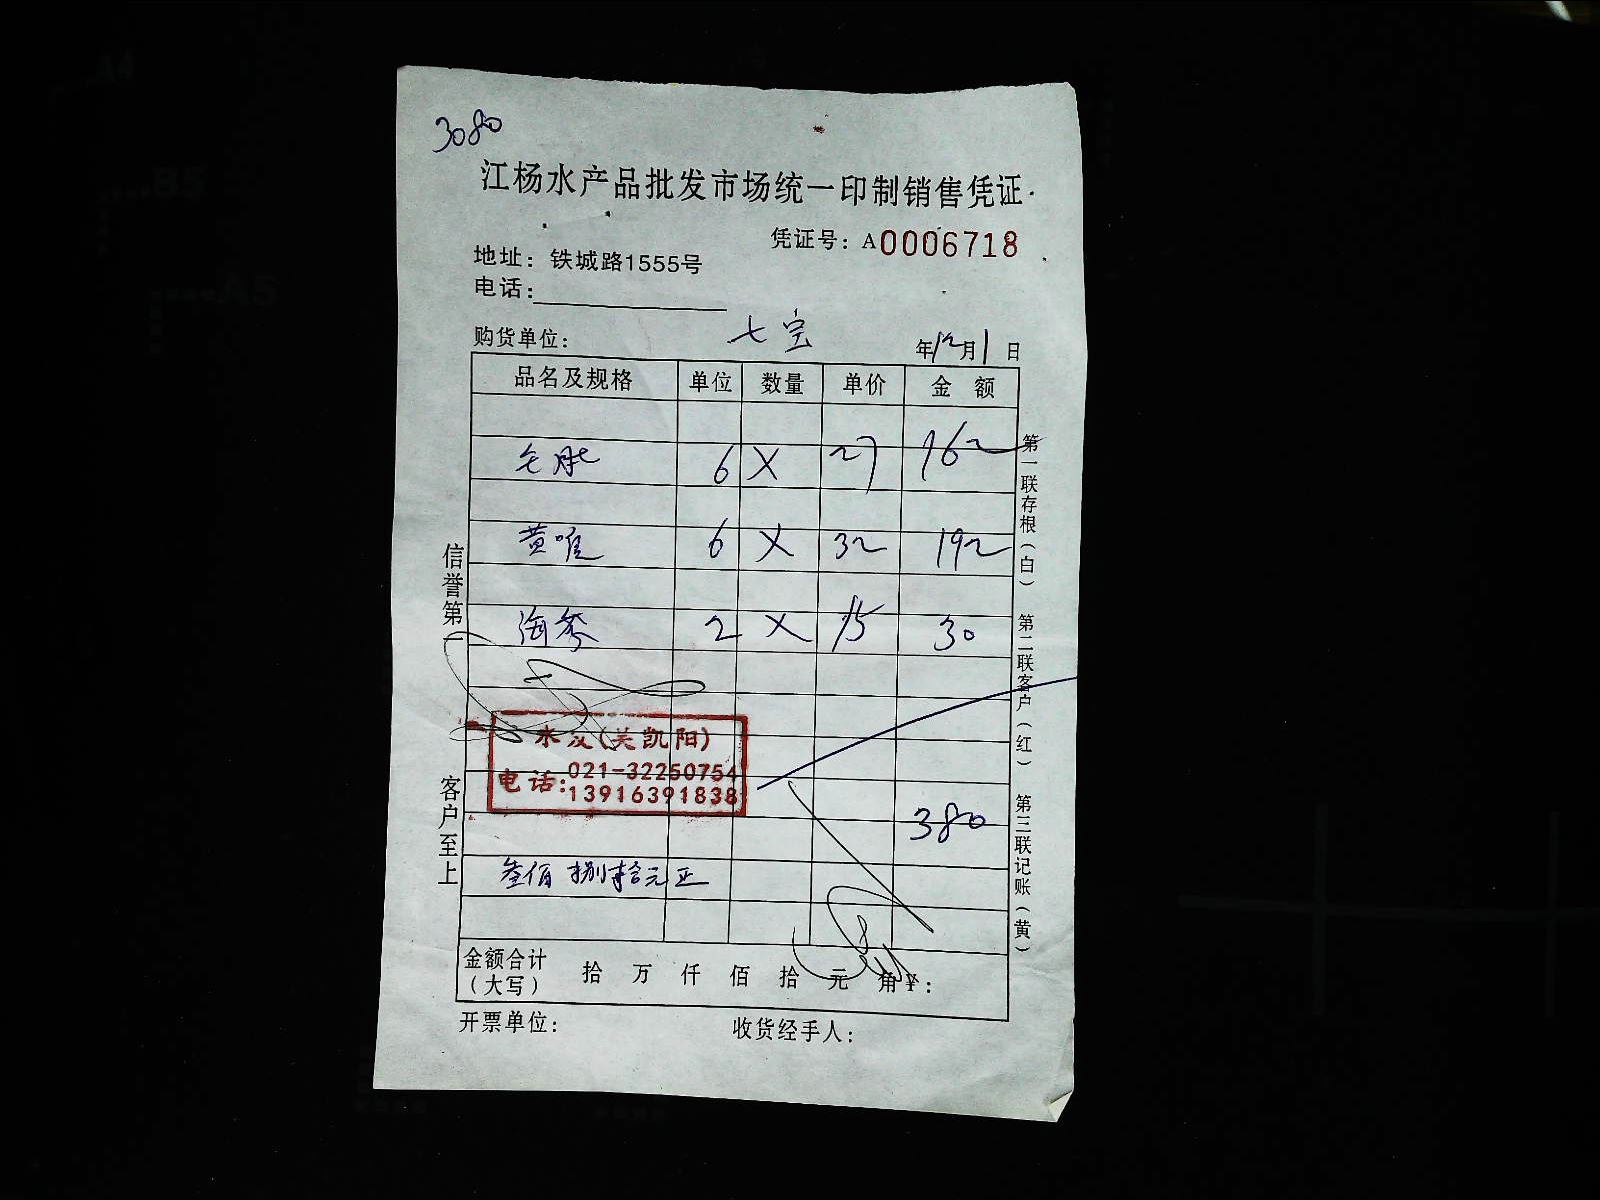 3080
江杨水产品批发市场统一印制销售凭证
凭证号：A0006718
地址：铁城路1555号
电话：
购货单位： 七宝 年12月1日
品名及规格 单位 数量 单价 金额
毛肚 6 X 27 162
黄喉 6 X 32 192
海参 2 X 15 30
(关凯阳)
电话:021-32250754
13916391838
380
叁佰捌拾元正
金额合计（大写） 拾 万 仟 佰 拾 元 角 ¥：
开票单位： 收货经手人：
信誉第一 客户至上
第一联存根（白） 第二联客户（红） 第三联记账（黄）